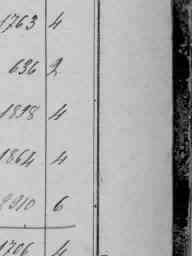 1763 4
636 2
1898 4
1864 4
910 6
1706 4